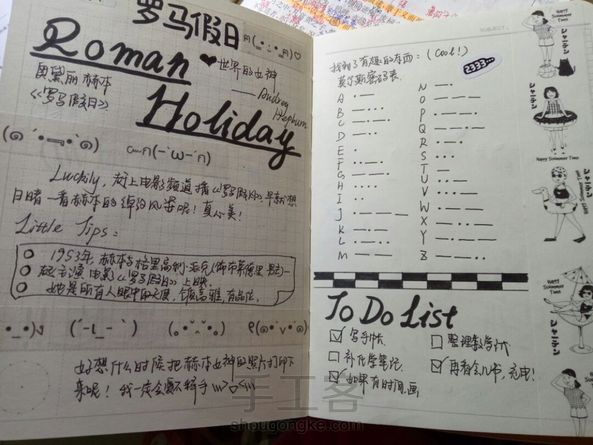 罗马假日
Roman
Holiday
奥黛丽·赫本
《罗马假日》
世界的女神
——Audrey
Hepburn
Luckily, 赶上电影频道播《罗马假日》,早就想
目睹一看赫本的绰约风姿呢!真心美!
Little Tips:
1953年,赫本与格里高利·派克
起主演电影《罗马假日》上映.
她是所有人眼中的天使,优雅,有品位.
好想什么时候把赫本女神的照片打印下
来呢!我一定会爱不释手
找到了有趣的东西:(Cool!)
莫尔斯密码表.
2333...
A ·—
B —···
C —·—·
D —··
E ·
F ··—·
G ——·
H ····
I ··
J ·———
K —·—
L ·—··
M ——
N —·
O ———
P ·——·
Q ——·—
R ·—·
S ···
T —
U ··—
V ···—
W ·——
X —··—
Y —·——
Z ——··
To Do List
☑ 写手帐
☐ 补化学笔记
☑ 如果有时间,画
☐ 整理数学
☑ 再看会儿书,充电!
SUBJECT.
Happy Summer Time
Happy Summer Time
手工客
shougongke.com